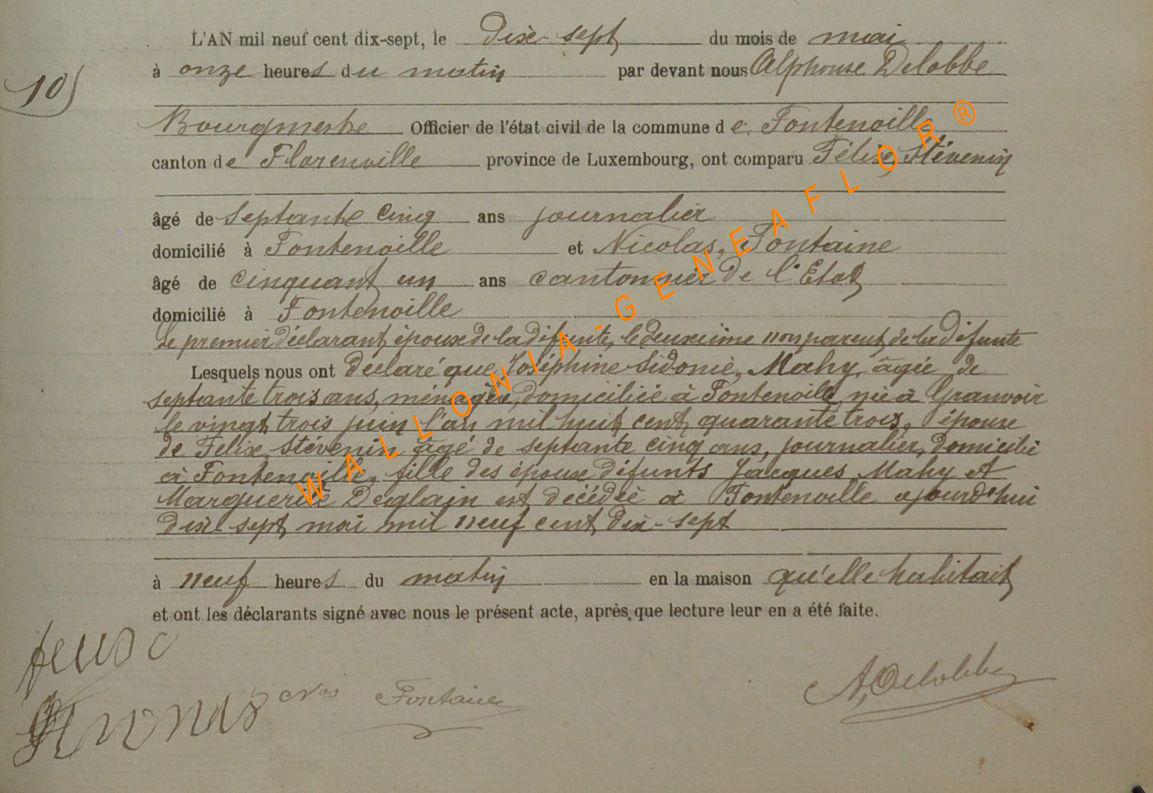 L'AN mil neuf cent dix-sept, le dix-sept du mois de mai
à onze heures du matin par devant nous Alphonse Delobbe
10
Bourgmestre Officier de l'état civil de la commune de Fontenoille
canton de Florenville province de Luxembourg, ont comparu Félix Stévenin
âgé de septante cinq ans journalier
domicilié à Fontenoille et Nicolas, Fontaine
âgé de cinquant un ans cantonnier de l'Etat
domicilié à Fontenoille
Le premier déclarant époux de la défunte, le deuxième non parent de la défunte
Lesquels nous ont déclaré que Joséphine Sidonie, Mahy, âgée de
septante trois ans, ménagère, domiciliée à Fontenoille, née à Granvoir
le vingt trois juin l'an mil huit cent quarante trois, épouse
de Félix Stévenin âgé de septante cinq ans, journalier, domicilié
à Fontenoille, fille des époux défunts Jacques Mahy et
Marguerite Deglain est décédée à Fontenoille ajourd'hui
dix-sept mai mil neuf cent dix-sept
à neuf heures du matin en la maison qu'elle habitait
et ont les déclarants signé avec nous le présent acte, après que lecture leur en a été faite.
Nas Fontaine
A, Delobbe
WALLONIA-GENEAFLOR®